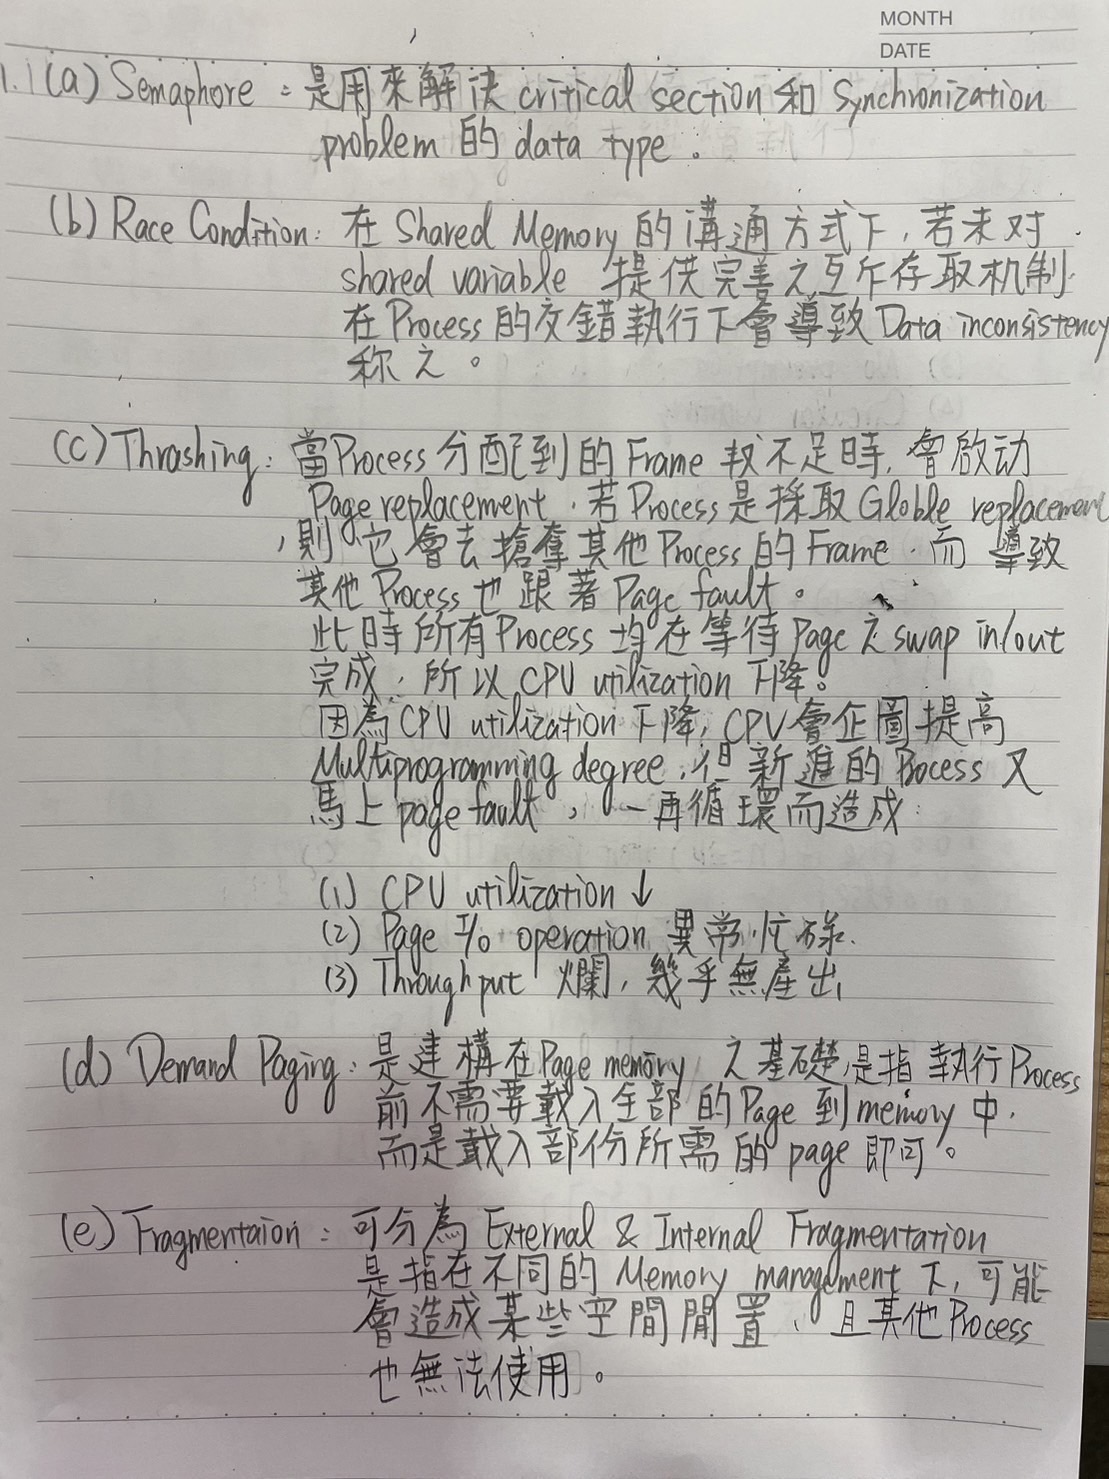 MONTH
DATE
1. (a) Semaphore : 是用來解決 critical section 和 Synchronization
problem 的 data type 。
(b) Race Condition: 在 Shared Memory 的溝通方式下, 若未对
shared variable 提供完善之互斥存取机制
在 Process 的交錯執行下會導致 Data inconsistency
称之。
(c) Thrashing: 當Process 分配到的 Frame 数不足時, 會啟动
Page replacement, 若 Process 是採取 Globle replacement
, 則它會去搶奪其他 Process 的 Frame, 而導致
其他 Process 也跟著 Page fault 。
此時所有 Process 均在等待 Page 之 swap in/out
完成, 所以 CPU utilization 下降。
因為 CPU utilization 下降, CPU 會企圖提高
Multiprogramming degree, 但新進的 Process 又
馬上 page fault , 一再循環而造成:
(1) CPU utilization ↓
(2) Page I/o operation 異常忙碌.
(3) Throughput 爛, 幾乎無產出
(d) Demand Paging: 是建構在 Page memory 之基礎, 是指執行 Process
前不需要載入全部的 Page 到 memory 中,
而是載入部份所需的 page 即可。
(e) Fragmentaion : 可分為 External & Internal Fragmentation
是指在不同的 Memory management 下, 可能
會造成某些空間閒置, 且其他 Process
也無法使用。